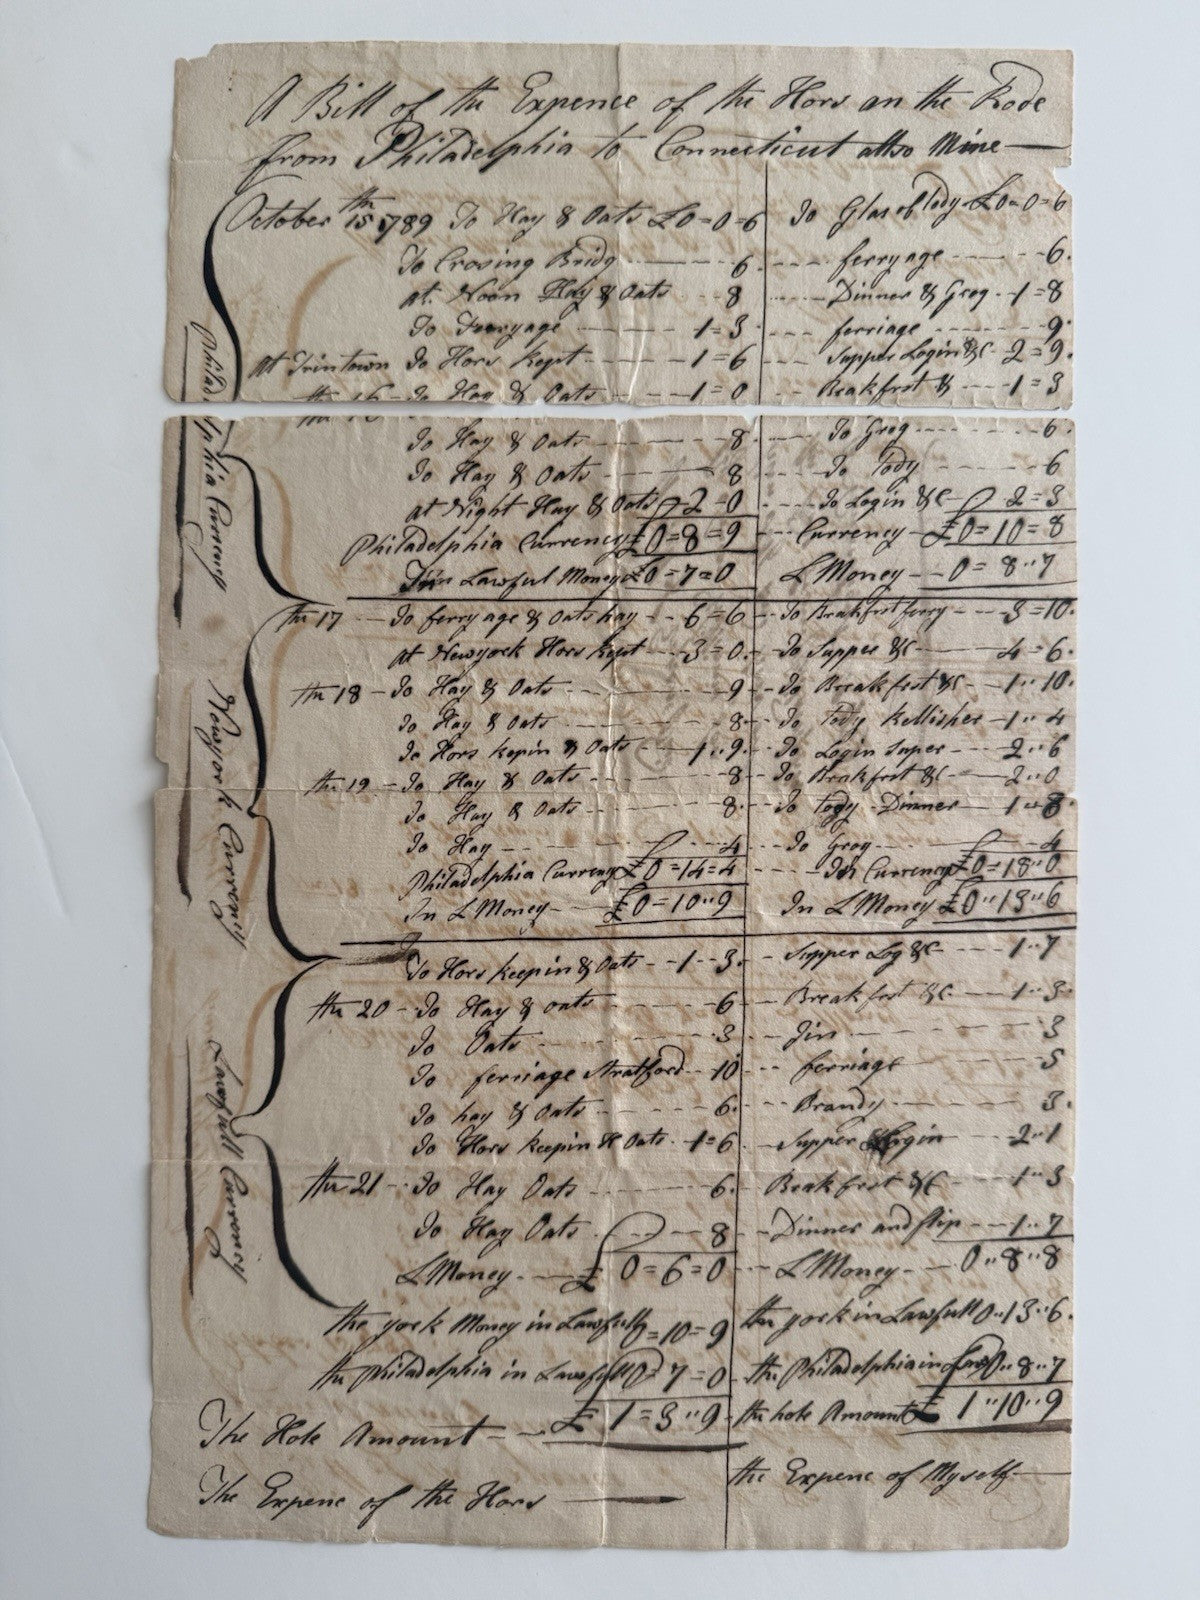 A Bill of the Expence of the Hors on the Rode
from Philadelphia to Connecticut allso Mine —
October 15th 1789 To Hay & Oats £0=0=6 To Glas of Tody £0=0=6
To Crosing Bridg — 6. ferryage — 6.
at Noon Hay & Oats 8 Dinner & Grog 1=8
To Ferryage — 1=3 ferriage — 9
At Trintown To Hors kept — 1=6 Supper Login &C 2=9.
th 16 – To Hay & Oats 1=0 Breakfrst & 1=3
To Hay & Oats — 8 To Grog — 6.
To Hay & Oats — 8 To Tody — 6
at Night Hay & Oats 2=0 To Login &C 2=3
Philadelphia Currency £0=8=9 Currency £0=10=8
In Lawful Money £0=7=0 L Money — 0=8"7
th 17 — To ferryage & Oats hay 6=6 To Breakfrst ferry 3=10.
at Newyork Hors kept 3=0. To Supper &C 4=6.
th 18 – To Hay & Oats 9 To Breakfrst &C 1"10.
To Hay & Oats 8 To Tody Kellisher 1"4
To Hors kepin & Oats 1"9. To Login Super 2"6
th 19 – To Hay & Oats 8 To Brakfrst &C 2"0
To Hay & Oats 8. To Tody Dinner 1"8
To Hay — 4 To Grog — 4
Philadelphia Currency £0=14=4 In Currency £0=18=0
In L Money £0=10"9 In L Money £0"13"6
To Hors keepin & Oats 1=3. Supper Log &C 1"7
th 20 – To Hay & oats 6 Breakfrst &C 1"3.
To Oats 3 Jin 3
To ferriage Stratford 10 ferriage 5
To hay & Oats 6. Brandy 3.
To Hors keepin & Oats 1=6 Supper Login 2"1
th 21 – To Hay Oats 6. Breakfrst &C 1"3
To Hay Oats 8 Dinner and flip 1"7
L Money £0=6=0 L Money 0"8"8
the york Money in Lawfull 0=10=9 the york in Lawfull 0"13"6.
the Philadelphia in Lawfull 0=7=0 the Philadelphia in Law 0"8"7
The Hole Amount £1=3"9 the hole Amount £1"10"9
The Expenc of the Hors — the Expenc of Myself —
Philadelphia Currency
Newyork Currency
Lawfull Currency